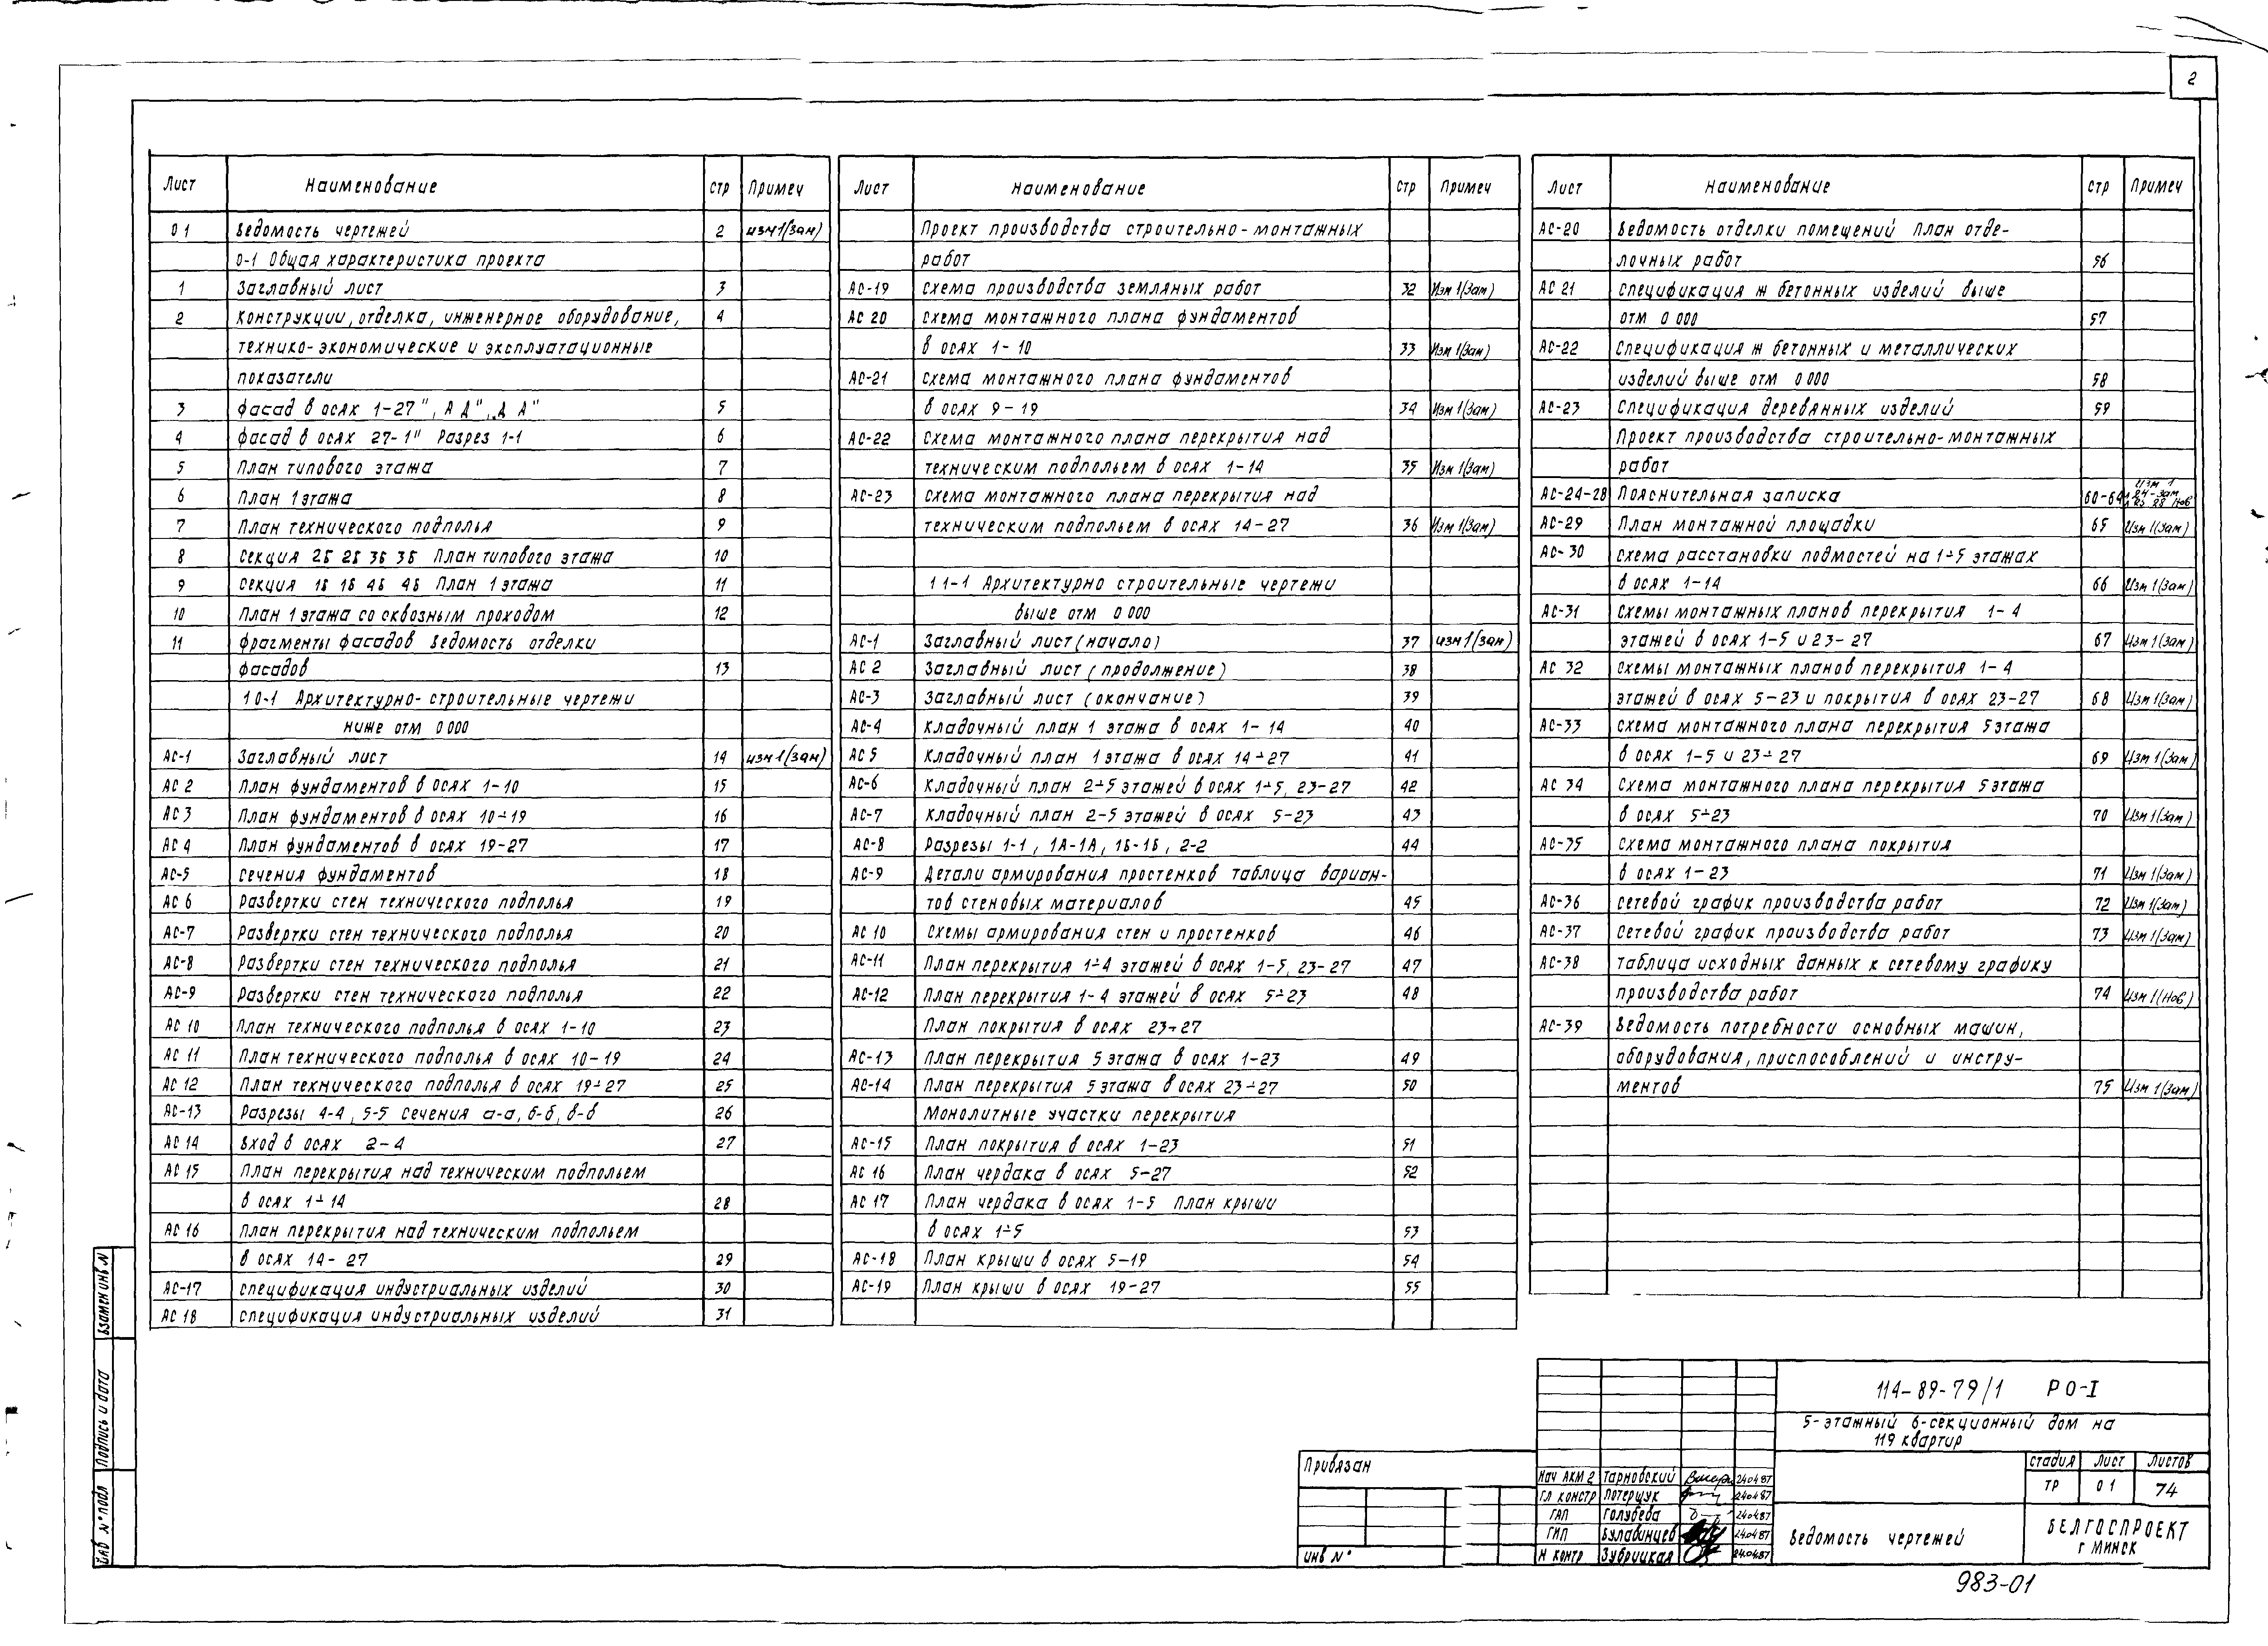 2
Лист Наименование стр Примеч
0 1 Ведомость чертежей 2 изм 1(Зам)
0-1 Общая характеристика проекта
1 Заглавный лист 3
2 Конструкции, отделка, инженерное оборудование, 4
технико-экономические и эксплуатационные
показатели
3 фасад в осях 1-27", А Д", Д А" 5
4 фасад в осях 27-1" Разрез 1-1 6
5 План типового этажа 7
6 План 1 этажа 8
7 План технического подполья 9
8 Секция 2Б 2Б 3Б 3Б План типового этажа 10
9 Секция 1Б 1Б 4Б 4Б План 1 этажа 11
10 План 1 этажа со сквозным проходом 12
11 фрагменты фасадов Ведомость отделки
фасадов 13
1 0-1 Архитектурно-строительные чертежи
ниже отм 0 000
АС-1 Заглавный лист 14 изм 1(Зам)
АС 2 План фундаментов в осях 1-10 15
АС 3 План фундаментов в осях 10÷19 16
АС 4 План фундаментов в осях 19-27 17
АС-5 Сечения фундаментов 18
АС 6 Развертки стен технического подполья 19
АС-7 Развертки стен технического подполья 20
АС-8 Развертки стен технического подполья 21
АС-9 Развертки стен технического подполья 22
АС 10 План технического подполья в осях 1-10 23
АС 11 План технического подполья в осях 10-19 24
АС 12 План технического подполья в осях 19÷27 25
АС-13 Разрезы 4-4, 5-5 Сечения а-а, б-б, в-в 26
АС 14 Вход в осях 2-4 27
АС 15 План перекрытия над техническим подпольем
в осях 1÷14 28
АС 16 План перекрытия над техническим подпольем
в осях 14-27 29
АС-17 спецификация индустриальных изделий 30
АС 18 спецификация индустриальных изделий 31
Лист Наименование стр Примеч
Проект производства строительно-монтажных
работ
АС-19 Схема производства земляных работ 32 Изм 1(Зам)
АС 20 Схема монтажного плана фундаментов
в осях 1-10 33 Изм 1(Зам)
АС-21 Схема монтажного плана фундаментов
в осях 9-19 34 Изм 1(Зам)
АС-22 Схема монтажного плана перекрытия над
техническим подпольем в осях 1-14 35 Изм 1(Зам)
АС-23 Схема монтажного плана перекрытия над
техническим подпольем в осях 14-27 36 Изм 1(Зам)
1 1-1 Архитектурно строительные чертежи
выше отм 0 000
АС-1 Заглавный лист (начало) 37 изм 1(Зам)
АС 2 Заглавный лист (продолжение) 38
АС-3 Заглавный лист (окончание) 39
АС-4 Кладочный план 1 этажа в осях 1-14 40
АС 5 Кладочный план 1 этажа в осях 14÷27 41
АС-6 Кладочный план 2÷5 этажей в осях 1÷5, 23-27 42
АС-7 Кладочный план 2-5 этажей в осях 5-23 43
АС-8 Разрезы 1-1, 1А-1А, 1Б-1Б, 2-2 44
АС-9 Детали армирования простенков таблица вариан-
тов стеновых материалов 45
АС 10 Схемы армирования стен и простенков 46
АС-11 План перекрытия 1÷4 этажей в осях 1-5, 23-27 47
АС-12 План перекрытия 1-4 этажей в осях 5÷23 48
План покрытия в осях 23÷27
АС-13 План перекрытия 5 этажа в осях 1-23 49
АС-14 План перекрытия 5 этажа в осях 23÷27 50
Монолитные участки перекрытия
АС-15 План покрытия в осях 1-23 51
АС 16 План чердака в осях 5-27 52
АС 17 План чердака в осях 1-5 План крыши
в осях 1÷5 53
АС-18 План крыши в осях 5-19 54
АС-19 План крыши в осях 19-27 55
Лист Наименование стр Примеч
АС-20 Ведомость отделки помещений План отде-
лочных работ 56
АС 21 Спецификация ж бетонных изделий выше
отм 0 000 57
АС-22 Спецификация ж бетонных и металлических
изделий выше отм 0 000 58
АС-23 Спецификация деревянных изделий 59
Проект производства строительно-монтажных
работ
АС-24-28 Пояснительная записка 60-64 изм 1
АС-29 План монтажной площадки 65 Изм 1(Зам)
АС-30 Схема расстановки подмостей на 1÷5 этажах
в осях 1-14 66 Изм 1(Зам)
АС-31 Схемы монтажных планов перекрытия 1-4
этажей в осях 1-5 и 23-27 67 Изм 1(Зам)
АС 32 Схемы монтажных планов перекрытия 1-4
этажей в осях 5-23 и покрытия в осях 23-27 68 Изм 1(Зам)
АС-33 Схема монтажного плана перекрытия 5 этажа
в осях 1-5 и 23÷27 69 Изм 1(Зам)
АС 34 Схема монтажного плана перекрытия 5 этажа
в осях 5÷23 70 Изм 1(Зам)
АС-35 Схема монтажного плана покрытия
в осях 1-23 71 Изм 1(Зам)
АС-36 Сетевой график производства работ 72 Изм 1(Зам)
АС-37 Сетевой график производства работ 73 Изм 1(Зам)
АС-38 таблица исходных данных к сетевому графику
производства работ 74 Изм 1(Нов)
АС-39 Ведомость потребности основных машин,
оборудования, приспособлений и инстру-
ментов 75 Изм 1(Зам)
Взамен инв N
Подпись и дата
Инв N° подл
Привязан
инв N°
114-89-79/1 Р О-I
5-этажный 6-секционный дом на
119 квартир
стадия лист листов
ТР 0 1 74
Нач АКМ 2 Тарновский 24.04.87
Гл констр Потерщук 24.04.87
ГАП Голубева 24.04.87
ГИП Булавинцев 24.04.87
Н контр Зубрицкая 24.04.87
Ведомость чертежей
БЕЛГОСПРОЕКТ
г Минск
983-01